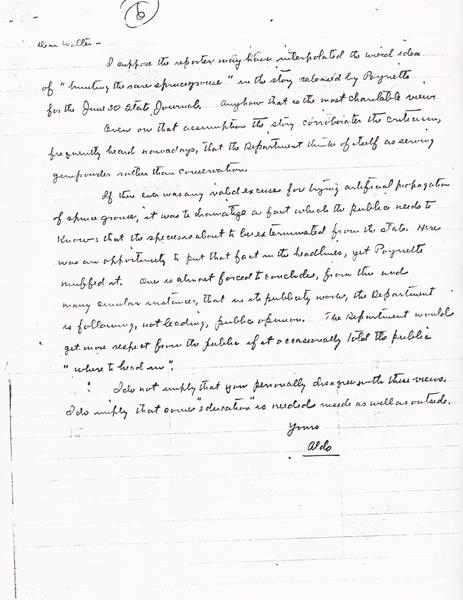 6
Dear Walter -
I suppose the reporter may have interpolated the weird idea
of "hunting the rare spruce grouse" in the story released by Poynette
for the June 30 State Journal. Anyhow that is the most charitable view.
Even on that assumption the story corroborates the criticism,
frequently heard nowadays, that the Department thinks of itself as serving
gunpowder rather than conservation.
If there ever was any valid excuse for trying artificial propagation
of spruce grouse, it was to dramatize a fact which the public needs to
know: that the species is about to be exterminated from the state. Here
was an opportunity to put that fact in the headlines, yet Poynette
muffed it. One is almost forced to conclude, from this and
many similar instances, that in its publicity work, the Department
is following, not leading, public opinion. The Department would
get more respect from the public if it occasionally told the public
"where to head in".
I do not imply that you personally disagree with these views.
I do imply that some "education" is needed inside as well as outside.
Yours
Aldo